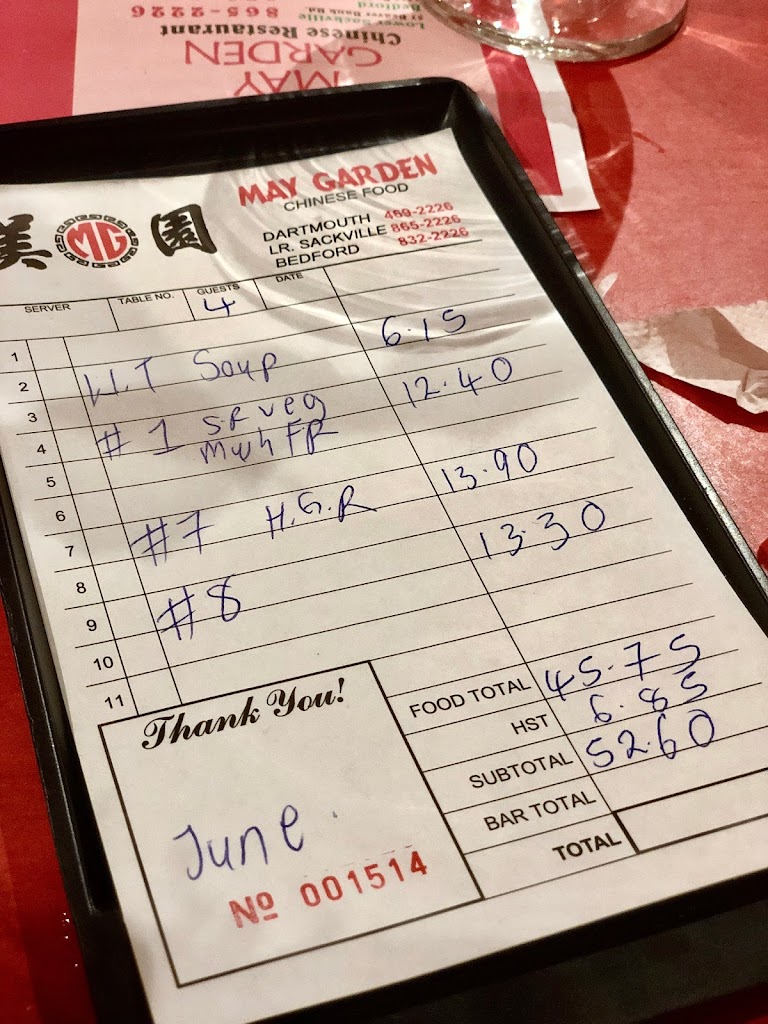 865-2226
Bedford
Lower Sackville
Chinese Restaurant
MAY
GARDEN
美 MG 園
MAY GARDEN
CHINESE FOOD
DARTMOUTH 469-2226
LR. SACKVILLE 865-2226
BEDFORD 832-2226
SERVER TABLE NO. GUESTS DATE
4
1
2 W.T Soup 6.15
3 # 1 S.R veg 12.40
4 mush FR
5
6
7 #7 H.G.R 13.90
8
9 #8 13.30
10
11
Thank You!
FOOD TOTAL 45.75
HST 6.85
SUBTOTAL 52.60
BAR TOTAL
TOTAL
June
Nº 001514